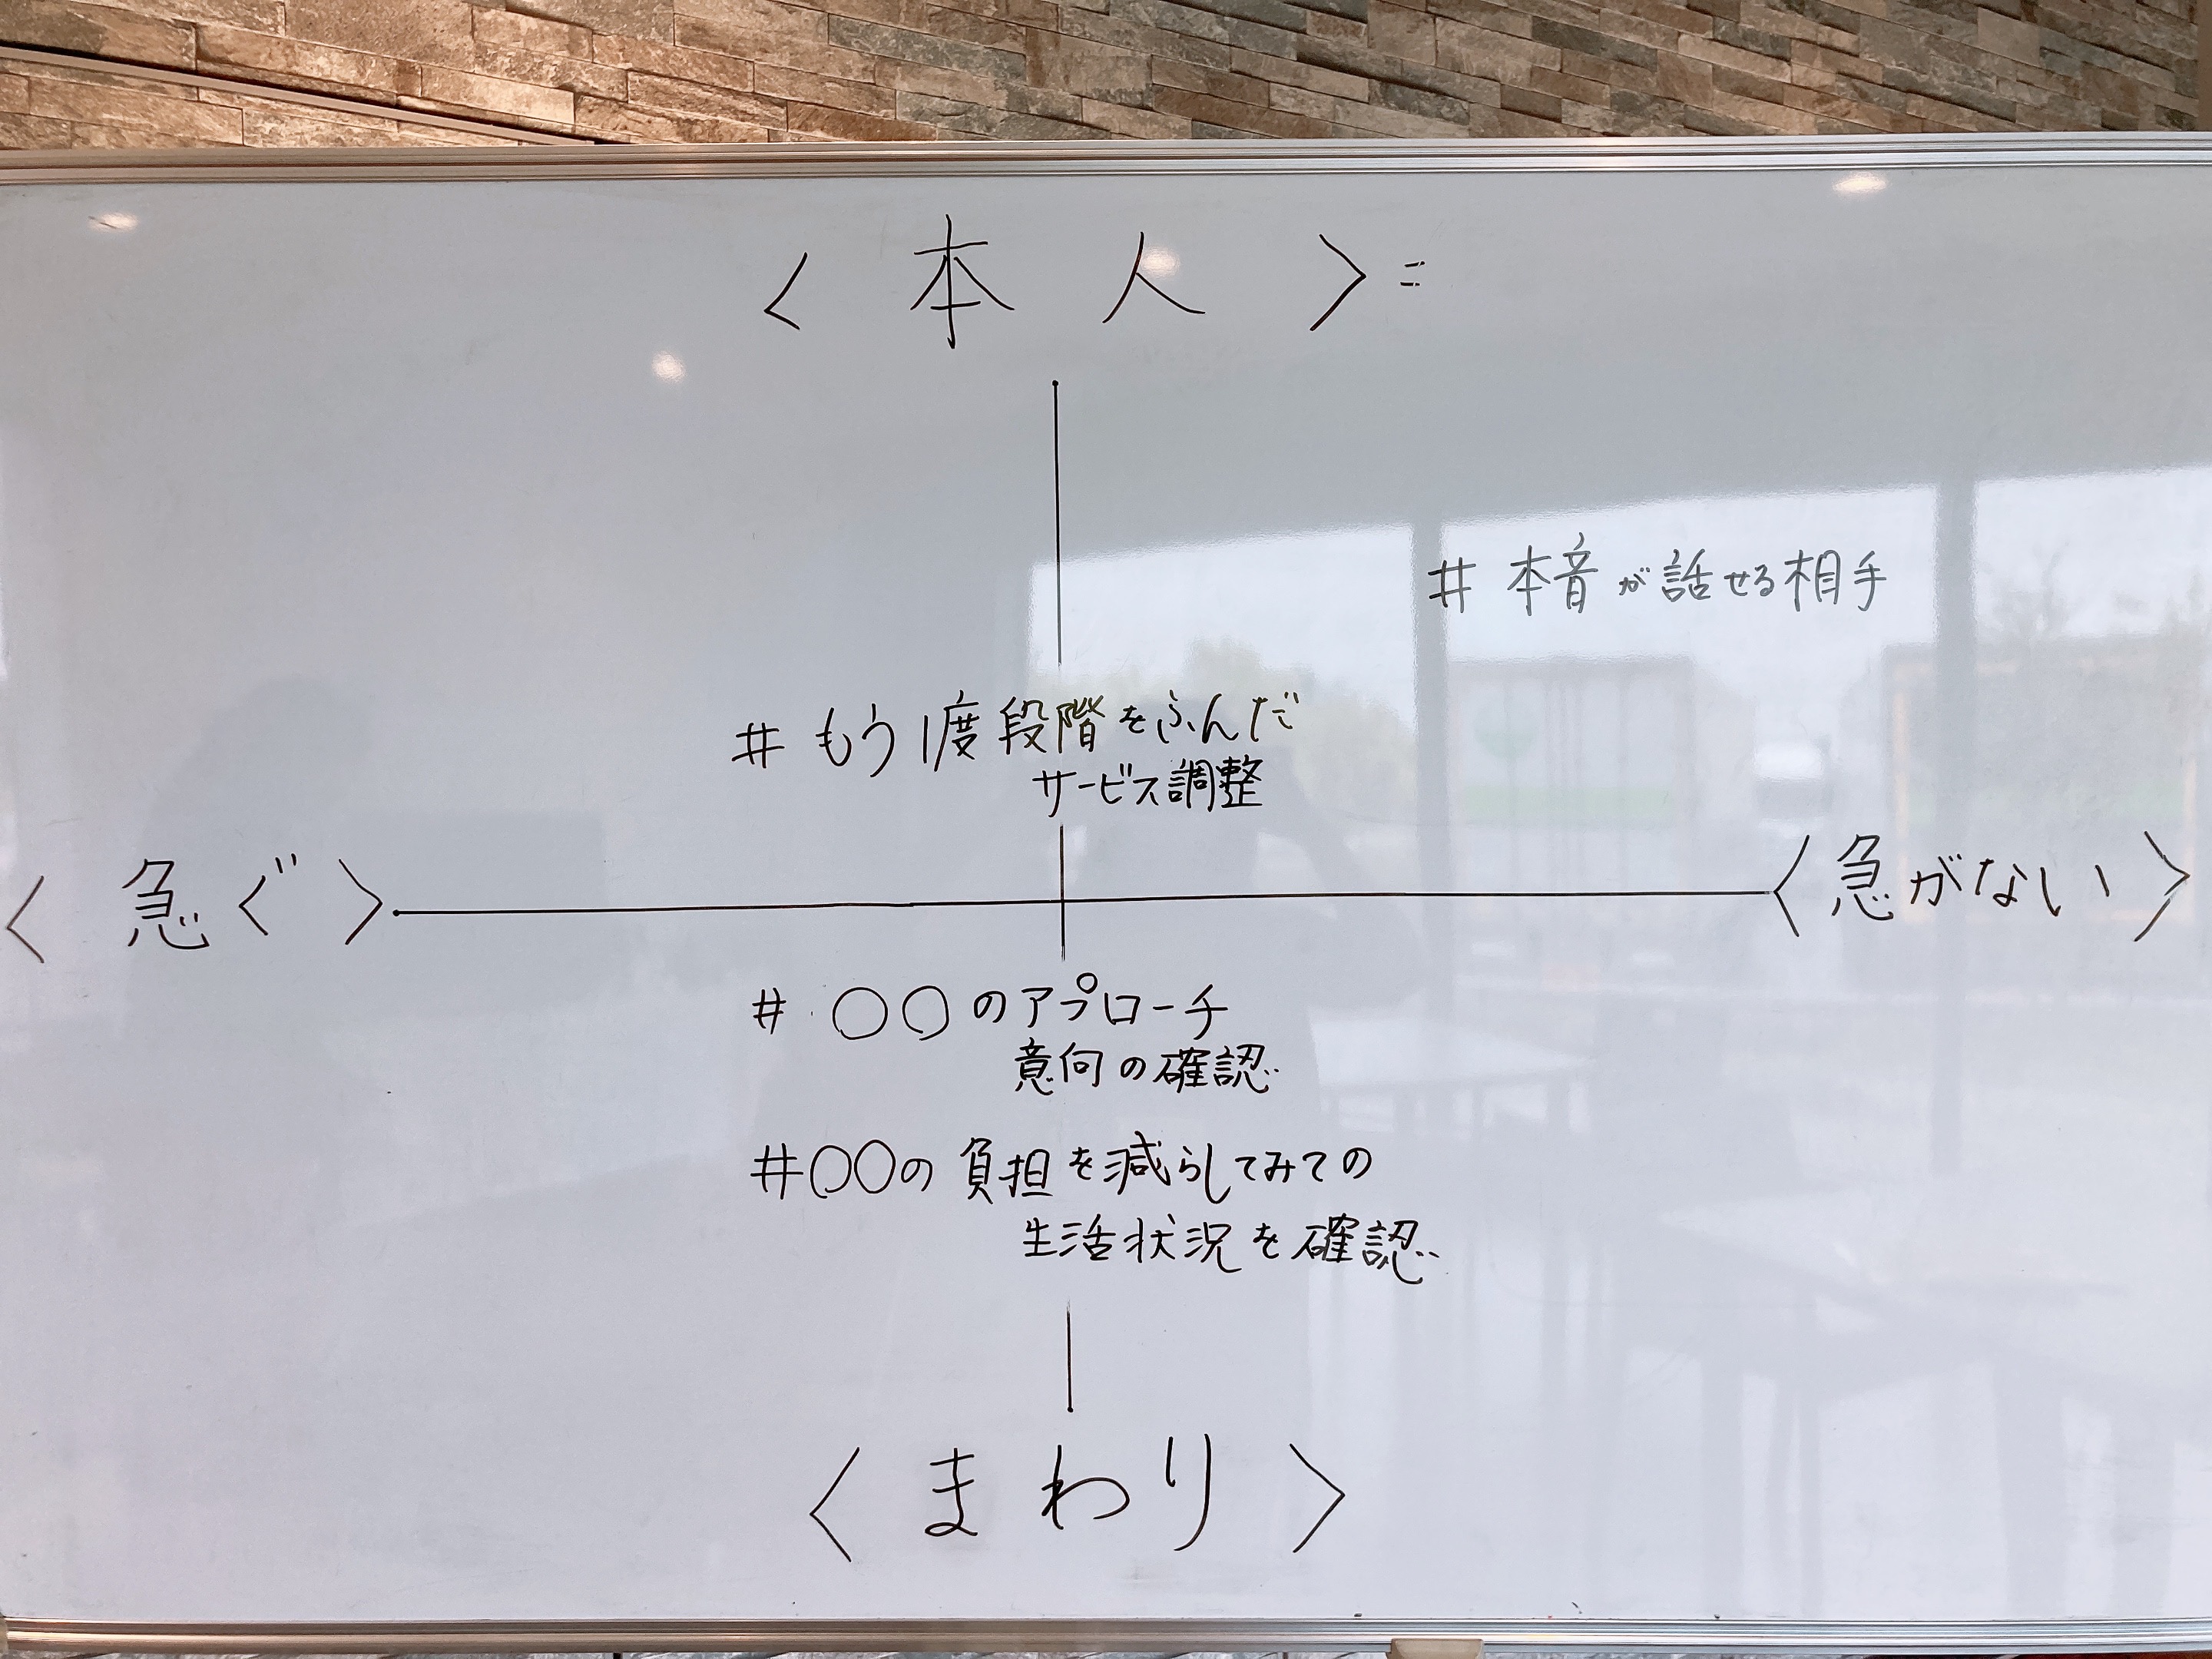 〈 本人 〉=
# 本音が話せる相手
# もう1度段階をふんだ
サービス調整
〈 急ぐ 〉
〈急がない〉
# 〇〇のアプローチ
意向の確認
#〇〇の負担を減らしてみての
生活状況を確認
〈 まわり 〉